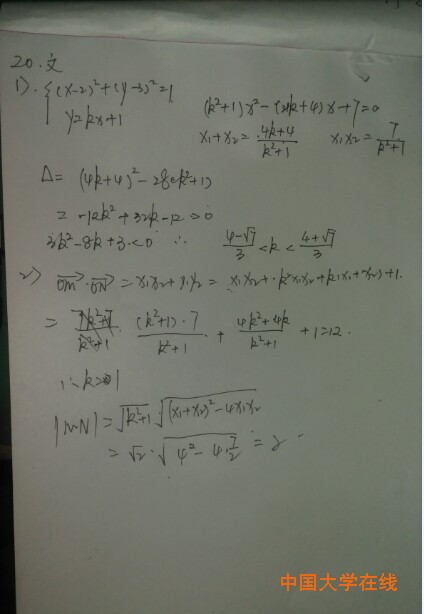 20.文
1). {(x-2)²+(y-3)²=1
y=kx+1
(k²+1)x²-(4k+4)x+7=0
x₁+x₂=4k+4/k²+1 x₁x₂=7/k²+1
Δ=(4k+4)²-28(k²+1)
=-12k²+32k-12>0
3k²-8k+3<0 ∴ 4-√7/3<k<4+√7/3
2) OM·ON=x₁x₂+y₁y₂=x₁x₂+k²x₁x₂+k(x₁+x₂)+1.
= (k²+1)·7/k²+1 + 4k²+4k/k²+1 +1=12.
∴k=1
|MN|=√k²+1 √(x₁+x₂)²-4x₁x₂
=√2·√4²-4·7/2=2
中国大学在线